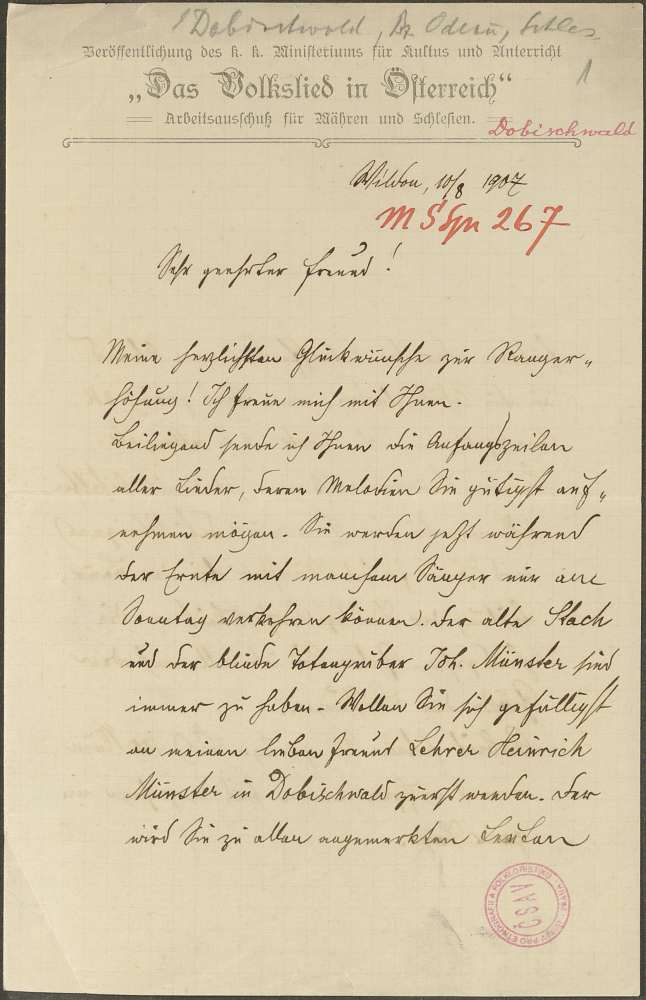 Dobischwald, Bz Odrau, Schles.
Veröffentlichung des k. k. Ministeriums für Kultus und Unterricht
1
„Das Volkslied in Österreich“
Arbeitsausschuß für Mähren und Schlesien.
Dobischwald
Wildon, 10/8 1907
267
Sehr geehrter Freund!
Meine herzlichsten Glückwünsche zur Ranger-
höhung! Ich freue mich mit Ihnen.
Beiliegend sende ich Ihnen die Anfangszeilen
aller Lieder, deren Melodien Sie gütigst auf-
nehmen mögen. Sie werden jetzt während
der Ernte mit manchem Sänger nur am
Sonntag verkehren können. Der alte Stach
und der blinde Totengräber Joh. Münster sind
immer zu haben. Wollen Sie sich gefälligst
an meinen lieben Freund Lehrer Heinrich
Münster in Dobischwald zuerst wenden. Der
wird Sie zu allen angemerkten Leuten
PRO ETNOGRAFII A FOLKLORISTIKU
ČSAV